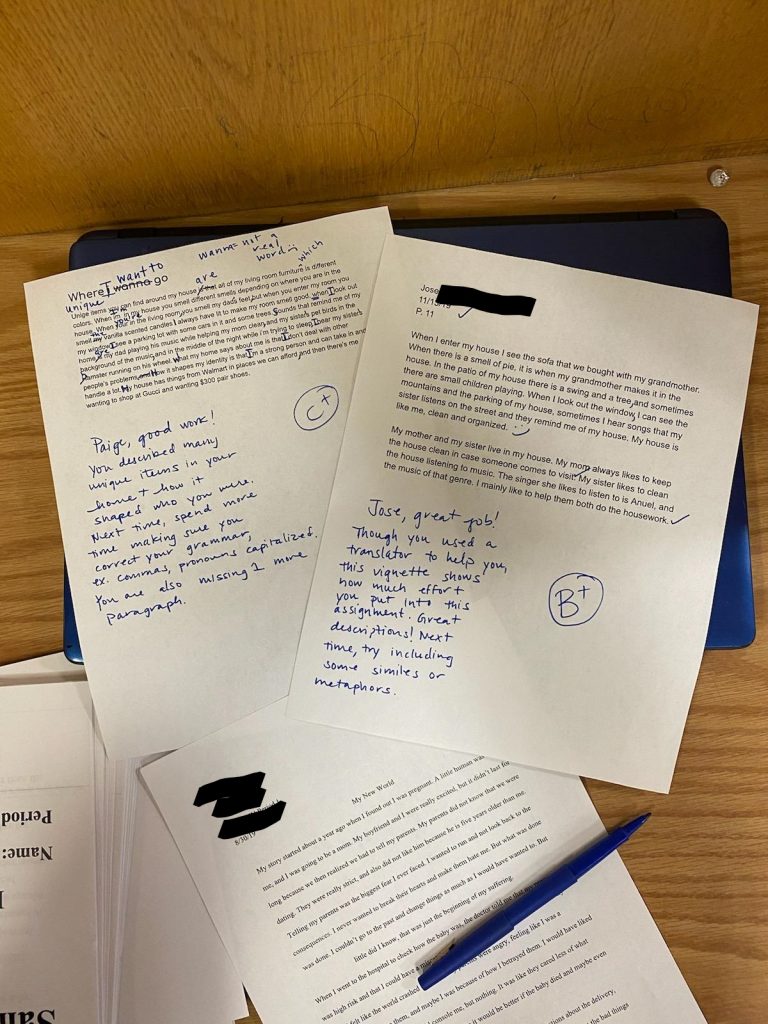 want to
wanna = not a real word :(
Where I wanna go
unique
are
which
Unique items you can find around my house is that all of my living room furniture is different
colors. When I'm in my house you smell different smells depending on where you are in the
house. When your in the living room you smell my dads feet but when you enter my room you
smell my vanilla scented candles I always have lit to make my room smell good. when I look out
my window I see a parking lot with some cars in it and some trees. Sounds that remind me of my
home are my dad playing his music while helping my mom clean, and my sister's pet birds in the
background of the music and in the middle of the night while i'm trying to sleep I hear my sister's
hamster running on his wheel. what my home says about me is that I don't deal with other
people's problems and How it shapes my identity is that I'm a strong person and can take in and
handle a lot. My house has things from Walmart in places we can afford, and then there's me
wanting to shop at Gucci and wanting $300 pair shoes.
C+
Paige, good work!
You described many
unique items in your
home + how it
shaped who you were.
Next time, spend more
time making sure you
correct your grammar,
ex. commas, pronouns capitalized.
You are also missing 1 more
paragraph.
Jose
P. 11
When I enter my house I see the sofa that we bought with my grandmother.
When there is a smell of pie, it is when my grandmother makes it in the
house. In the patio of my house there is a swing and a tree, and sometimes
there are small children playing. When I look out the window, I can see the
mountains and the parking of my house, sometimes I hear songs that my
sister listens on the street and they remind me of my house. My house is
like me, clean and organized. :)
My mother and my sister live in my house. My mom always likes to keep
the house clean in case someone comes to visit. My sister likes to clean
the house listening to music. The singer she likes to listen to is Anuel, and
the music of that genre. I mainly like to help them both do the housework.
Jose, great job!
Though you used a
translator to help you,
this vignette shows
how much effort
you put into this
assignment. Great
descriptions! Next
time, try including
some similes or
metaphors.
B+
8/30/19
My New World
My story started about a year ago when I found out I was pregnant. A little human was
me, and I was going to be a mom. My boyfriend and I were really excited, but it didn't last for
long because we then realized we had to tell my parents. My parents did not know that we were
dating. They were really strict, and also did not like him because he is five years older than me.
Telling my parents was the biggest fear I ever faced. I wanted to run and not look back to the
consequences. I never wanted to break their hearts and make them hate me. But what was done
was done. I couldn't go to the past and change things as much as I would have wanted to. But
little did I know, that was just the beginning of my suffering.
When I went to the hospital to check how the baby was, the doctor told me that my
was high risk and that I could have a were angry, feeling like I was
felt like the world crashed I would have liked
them, and maybe I was because of how I betrayed them.
console me, but nothing. It was like they cared less of what
it would be better if the baby died and maybe even
about the delivery,
the bad things
Period
Name: